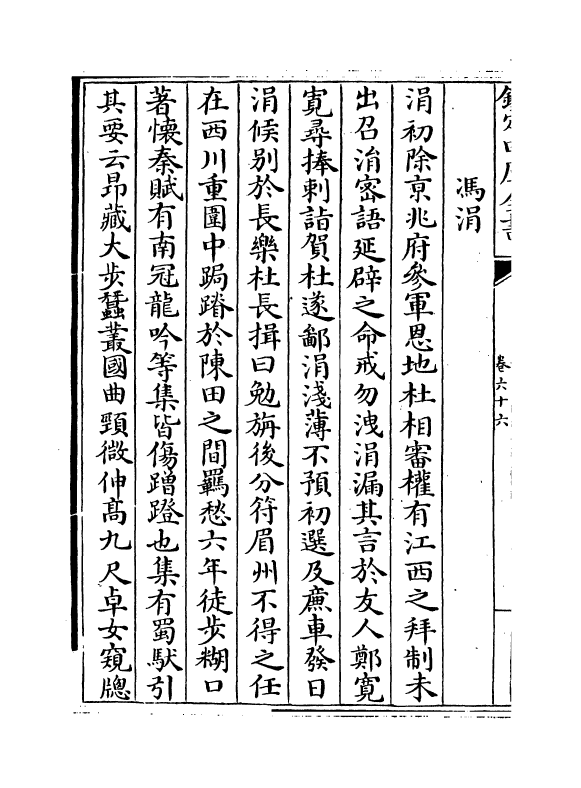 欽定四庫全書
卷六十六
馮涓
涓初除京兆府參軍恩地杜相審權有江西之拜制未
出召涓密語延辟之命戒勿洩涓漏其言於友人鄭寛
寛尋捧刺詣賀杜遂鄙涓淺薄不預初選及廉車發日
涓候别於長樂杜長揖曰勉旃後分符眉州不得之任
在西川重圍中跼蹐於陳田之間羈愁六年徒步糊口
著懐秦賦有南冠龍吟等集皆傷蹭蹬也集有蜀馱引
其要云昂藏大步蠶叢國曲頸微伸髙九尺卓女窺牕